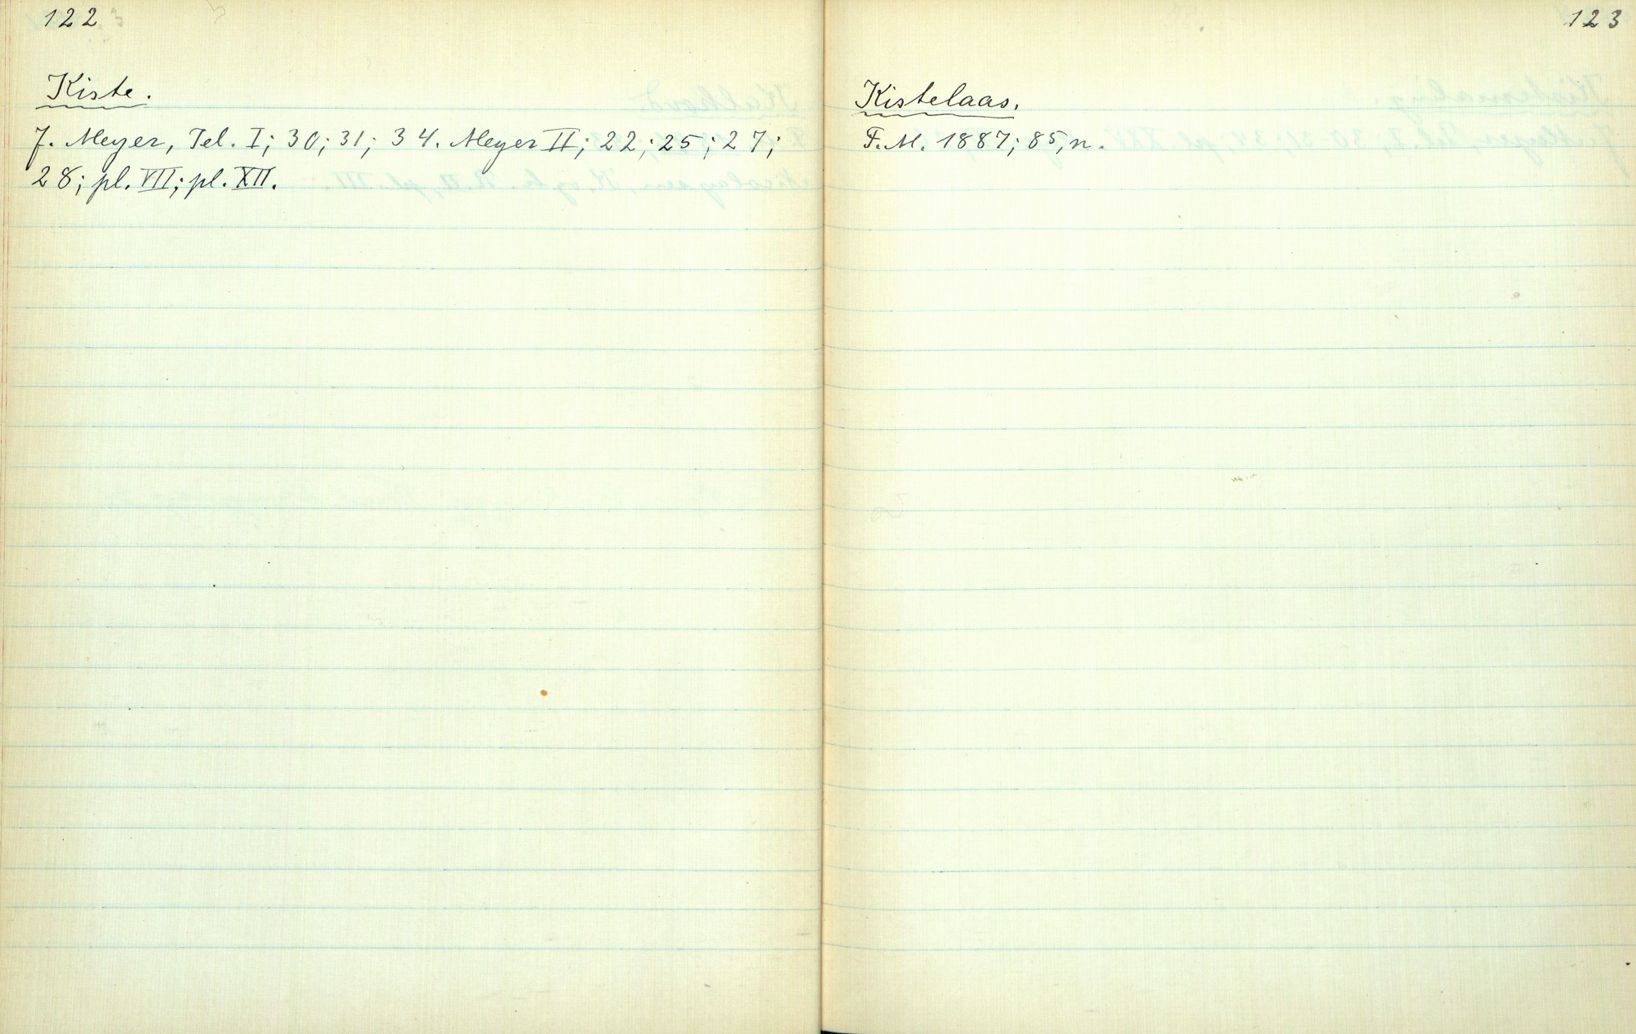 122
Kiste.
J. Meyer, Tel. I; 30; 31; 34. Meyer II; 22; 25; 27;
28; pl. VII; pl. XII.
123
Kistelaas.
F.M. 1887; 85, n.